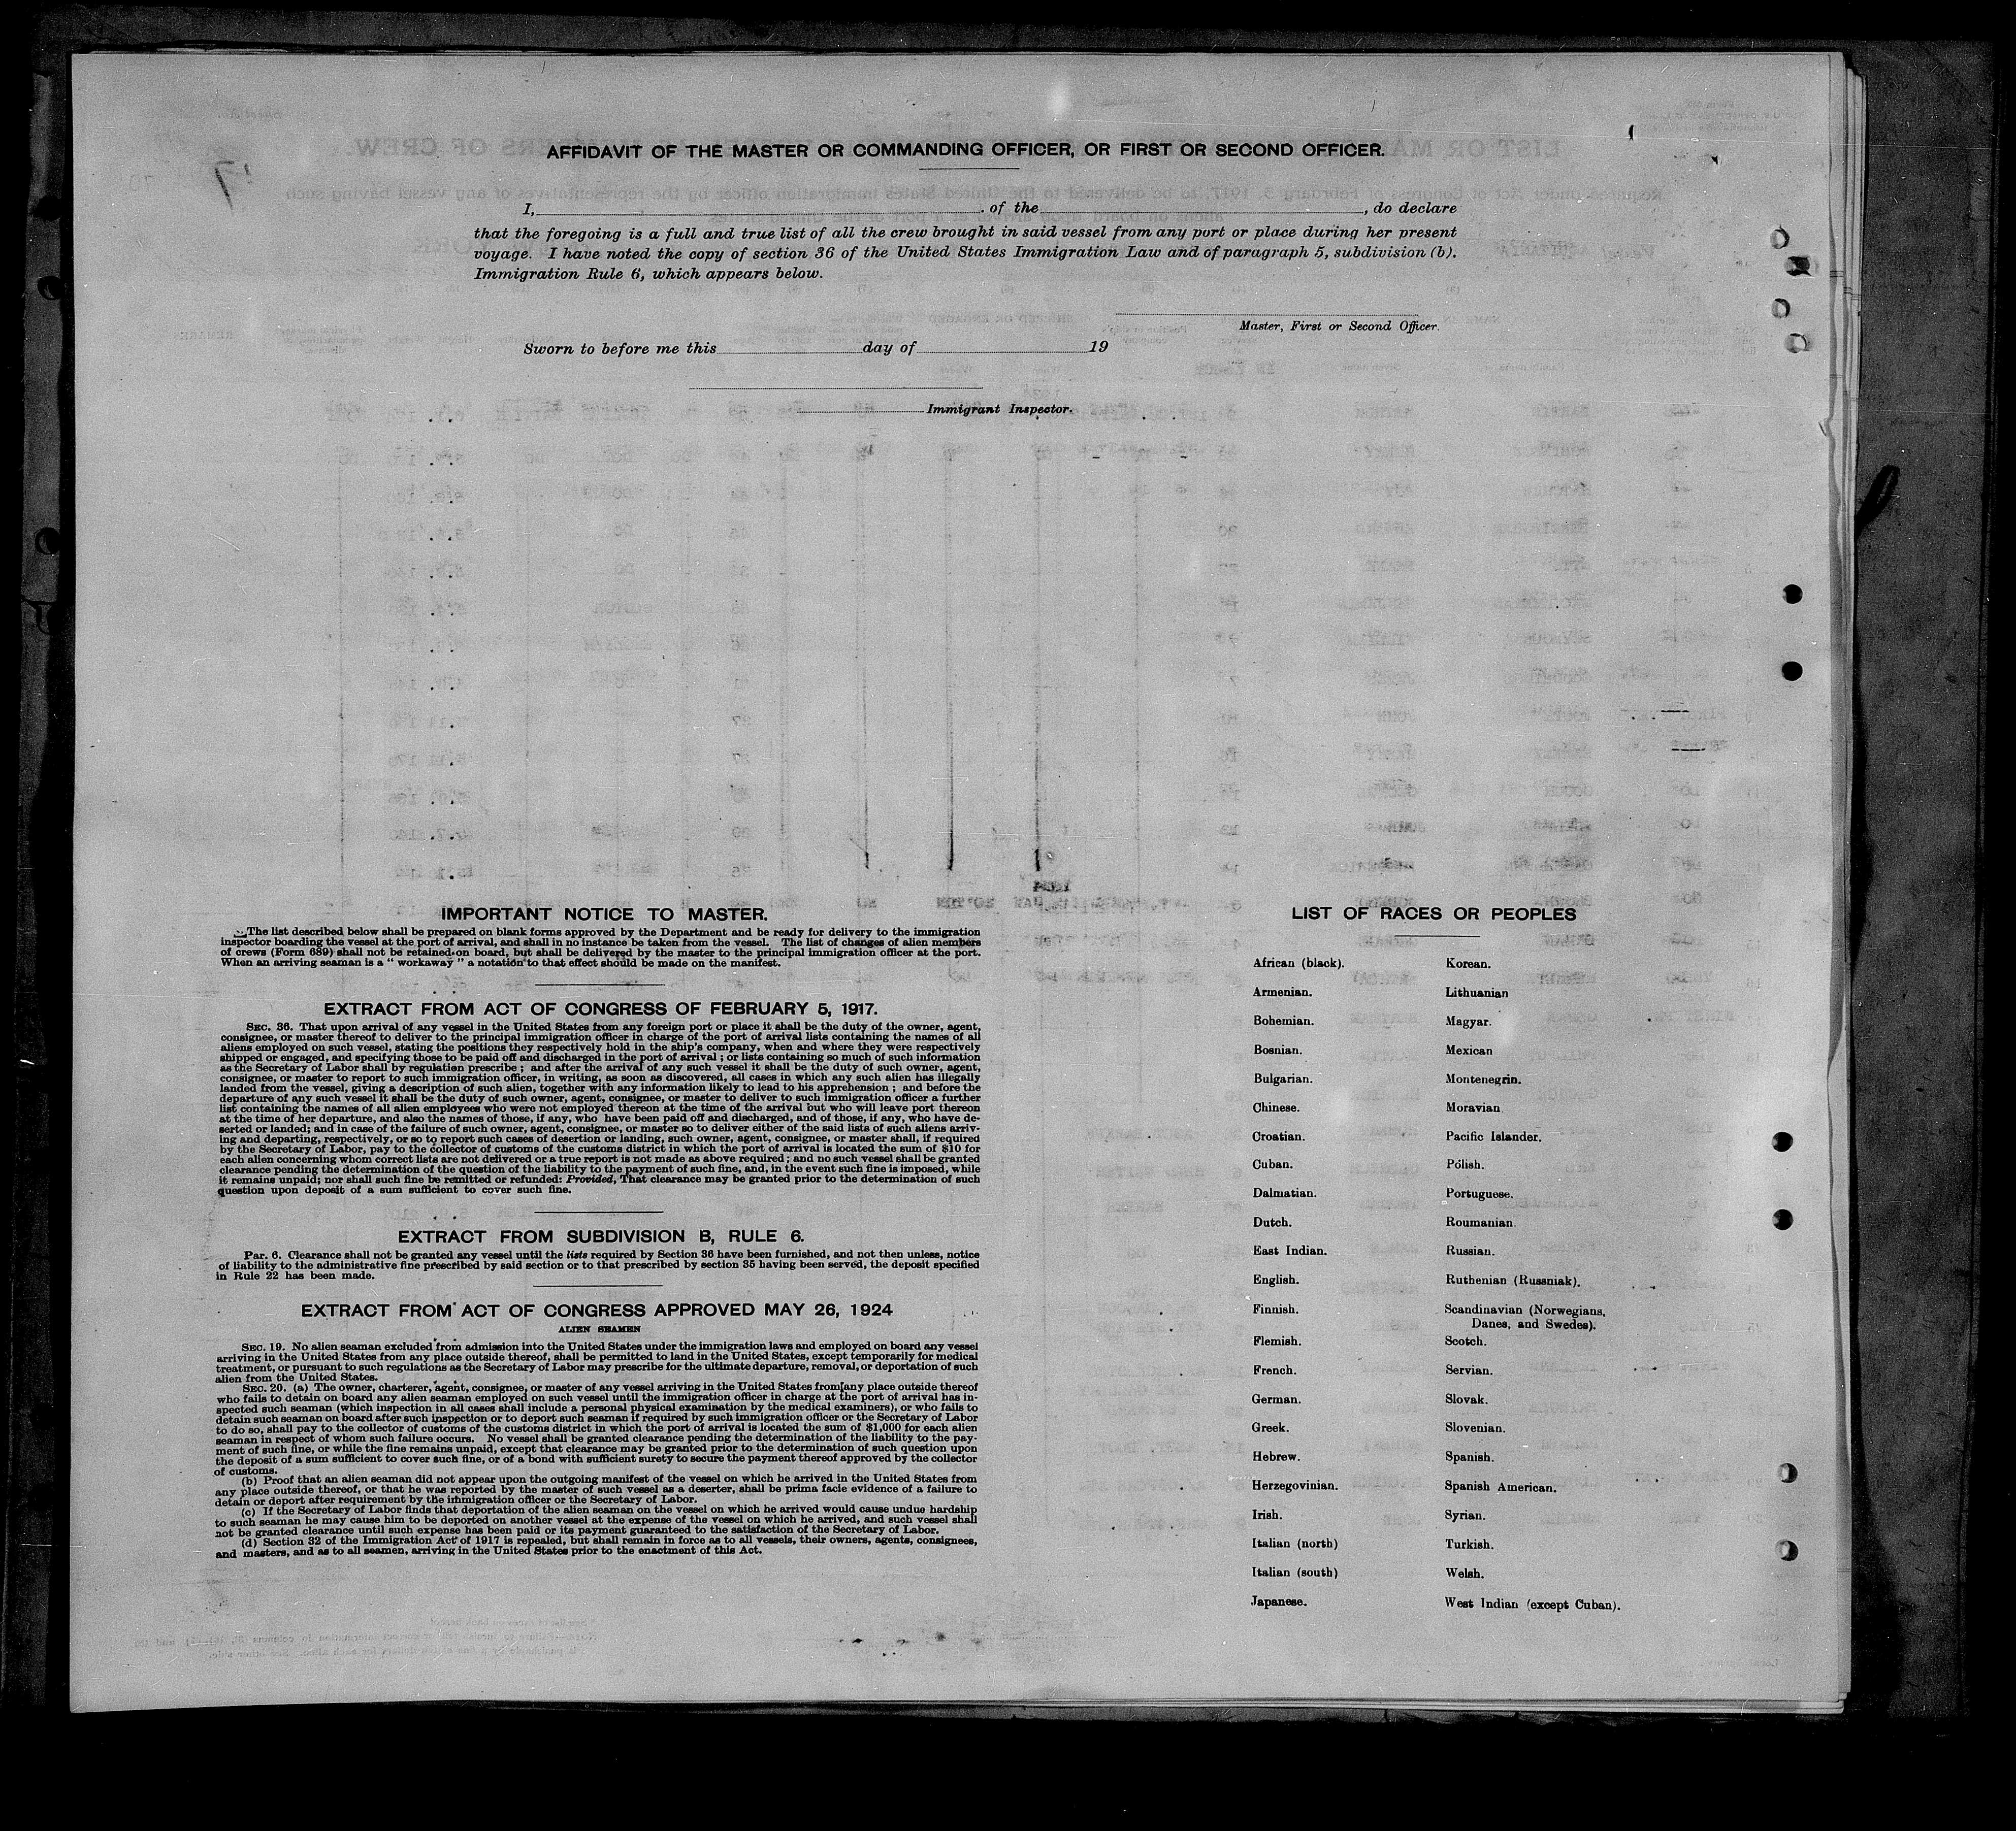 AFFIDAVIT OF THE MASTER OR COMMANDING OFFICER, OR FIRST OR SECOND OFFICER.
I, of the , do declare
that the foregoing is a full and true list of all the crew brought in said vessel from any port or place during her present
voyage. I have noted the copy of section 36 of the United States Immigration Law and of paragraph 5, subdivision (b).
Immigration Rule 6, which appears below.
Master, First or Second Officer.
Sworn to before me this day of 19
Immigrant Inspector.
IMPORTANT NOTICE TO MASTER.
The list described below shall be prepared on blank forms approved by the Department and be ready for delivery to the immigration
inspector boarding the vessel at the port of arrival, and shall in no instance be taken from the vessel. The list of changes of alien members
of crews (Form 689) shall not be retained on board, but shall be delivered by the master to the principal immigration officer at the port.
When an arriving seaman is a " workaway " a notation to that effect should be made on the manifest.
EXTRACT FROM ACT OF CONGRESS OF FEBRUARY 5, 1917.
SEC. 36. That upon arrival of any vessel in the United States from any foreign port or place it shall be the duty of the owner, agent,
consignee, or master thereof to deliver to the principal immigration officer in charge of the port of arrival lists containing the names of all
aliens employed on such vessel, stating the positions they respectively hold in the ship's company, when and where they were respectively
shipped or engaged, and specifying those to be paid off and discharged in the port of arrival ; or lists containing so much of such information
as the Secretary of Labor shall by regulation prescribe ; and after the arrival of any such vessel it shall be the duty of such owner, agent,
consignee, or master to report to such immigration officer, in writing, as soon as discovered, all cases in which any such alien has illegally
landed from the vessel, giving a description of such alien, together with any information likely to lead to his apprehension ; and before the
departure of any such vessel it shall be the duty of such owner, agent, consignee, or master to deliver to such immigration officer a further
list containing the names of all alien employees who were not employed thereon at the time of the arrival but who will leave port thereon
at the time of her departure, and also the names of those, if any, who have been paid off and discharged, and of those, if any, who have de-
serted or landed; and in case of the failure of such owner, agent, consignee, or master so to deliver either of the said lists of such aliens arriv-
ing and departing, respectively, or so to report such cases of desertion or landing, such owner, agent, consignee, or master shall, if required
by the Secretary of Labor, pay to the collector of customs of the customs district in which the port of arrival is located the sum of $10 for
each alien concerning whom correct lists are not delivered or a true report is not made as above required ; and no such vessel shall be granted
clearance pending the determination of the question of the liability to the payment of such fine, and, in the event such fine is imposed, while
it remains unpaid; nor shall such fine be remitted or refunded: Provided, That clearance may be granted prior to the determination of such
question upon deposit of a sum sufficient to cover such fine.
EXTRACT FROM SUBDIVISION B, RULE 6.
Par. 6. Clearance shall not be granted any vessel until the lists required by Section 36 have been furnished, and not then unless, notice
of liability to the administrative fine prescribed by said section or to that prescribed by section 35 having been served, the deposit specified
in Rule 22 has been made.
EXTRACT FROM ACT OF CONGRESS APPROVED MAY 26, 1924
ALIEN SEAMEN
SEC. 19. No alien seaman excluded from admission into the United States under the immigration laws and employed on board any vessel
arriving in the United States from any place outside thereof, shall be permitted to land in the United States, except temporarily for medical
treatment, or pursuant to such regulations as the Secretary of Labor may prescribe for the ultimate departure, removal, or deportation of such
alien from the United States.
SEC. 20. (a) The owner, charterer, agent, consignee, or master of any vessel arriving in the United States from any place outside thereof
who fails to detain on board any alien seaman employed on such vessel until the immigration officer in charge at the port of arrival has in-
spected such seaman (which inspection in all cases shall include a personal physical examination by the medical examiners), or who fails to
detain such seaman on board after such inspection or to deport such seaman if required by such immigration officer or the Secretary of Labor
to do so, shall pay to the collector of customs of the customs district in which the port of arrival is located the sum of $1,000 for each alien
seaman in respect of whom such failure occurs. No vessel shall be granted clearance pending the determination of the liability to the pay-
ment of such fine, or while the fine remains unpaid, except that clearance may be granted prior to the determination of such question upon
the deposit of a sum sufficient to cover such fine, or of a bond with sufficient surety to secure the payment thereof approved by the collector
of customs.
(b) Proof that an alien seaman did not appear upon the outgoing manifest of the vessel on which he arrived in the United States from
any place outside thereof, or that he was reported by the master of such vessel as a deserter, shall be prima facie evidence of a failure to
detain or deport after requirement by the immigration officer or the Secretary of Labor.
(c) If the Secretary of Labor finds that deportation of the alien seaman on the vessel on which he arrived would cause undue hardship
to such seaman he may cause him to be deported on another vessel at the expense of the vessel on which he arrived, and such vessel shall
not be granted clearance until such expense has been paid or its payment guaranteed to the satisfaction of the Secretary of Labor.
(d) Section 32 of the Immigration Act of 1917 is repealed, but shall remain in force as to all vessels, their owners, agents, consignees,
and masters, and as to all seamen, arriving in the United States prior to the enactment of this Act.
LIST OF RACES OR PEOPLES
African (black). Korean.
Armenian. Lithuanian
Bohemian. Magyar.
Bosnian. Mexican
Bulgarian. Montenegrin.
Chinese. Moravian
Croatian. Pacific Islander.
Cuban. Polish.
Dalmatian. Portuguese.
Dutch. Roumanian.
East Indian. Russian.
English. Ruthenian (Russniak).
Finnish. Scandinavian (Norwegians,
Danes, and Swedes).
Flemish. Scotch.
French. Servian.
German. Slovak.
Greek. Slovenian.
Hebrew. Spanish.
Herzegovinian. Spanish American.
Irish. Syrian.
Italian (north) Turkish.
Italian (south) Welsh.
Japanese. West Indian (except Cuban).